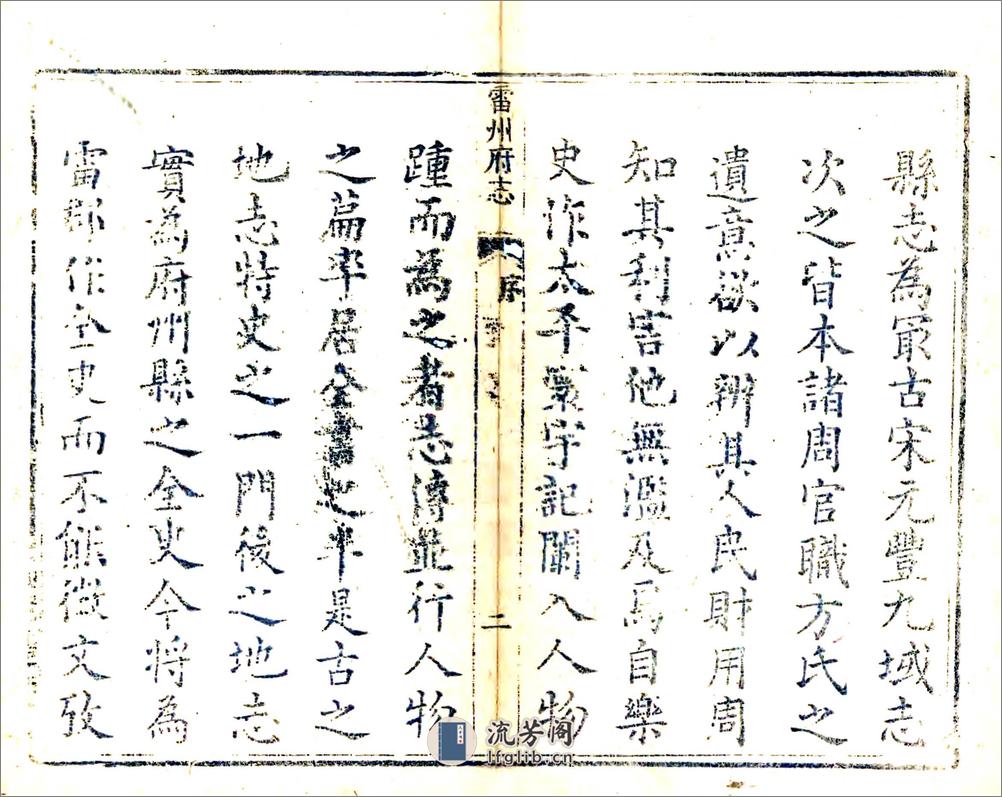 縣志為冣古宋元豐九域志
次之皆本諸周官職方氏之
遺意欲以辨其人民財用周
知其利害他無濫及焉自樂
史作太平寰宇記闌入人物
雷州府志
序
二
踵而為之者志傳並行人物
之篇率居全書之半是古之
地志特史之一門後之地志
實為府州縣之全史今將為
雷郡作全史而不能徵文攷
流芳阁
lfglib.cn